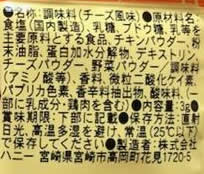 ●名称:調味料(チーズ風味)●原材料名:
食塩(国内製造)、乳糖、ブドウ糖、乳等を
主要原料とする食品、チキンパウダー、粉
末油脂、蛋白加水分解物、デキストリン、
チーズパウダー、野菜パウダー/調味料
(アミノ酸等)、香料、微粒二酸化ケイ素、
パプリカ色素、香辛料抽出物、甘味料、(一
部に乳成分・鶏肉を含む)●内容量:3g●
賞味期限:下部に記載●保存方法:直射
日光、高温多湿を避け、常温(25℃以下)
で保存してください●製造者:株式会社
ハニー 宮崎県宮崎市高岡町花見1720-5